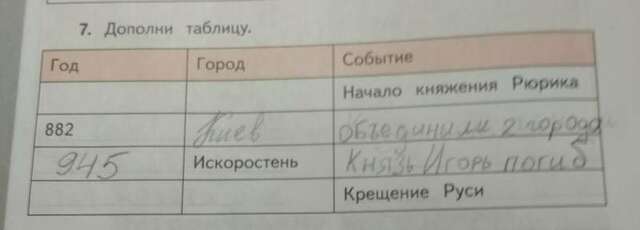 7. Дополни таблицу.
Год Город Событие
Начало княжения Рюрика
882 Киев объединили 2 города
945 Искоростень Князь Игорь погиб
Крещение Руси